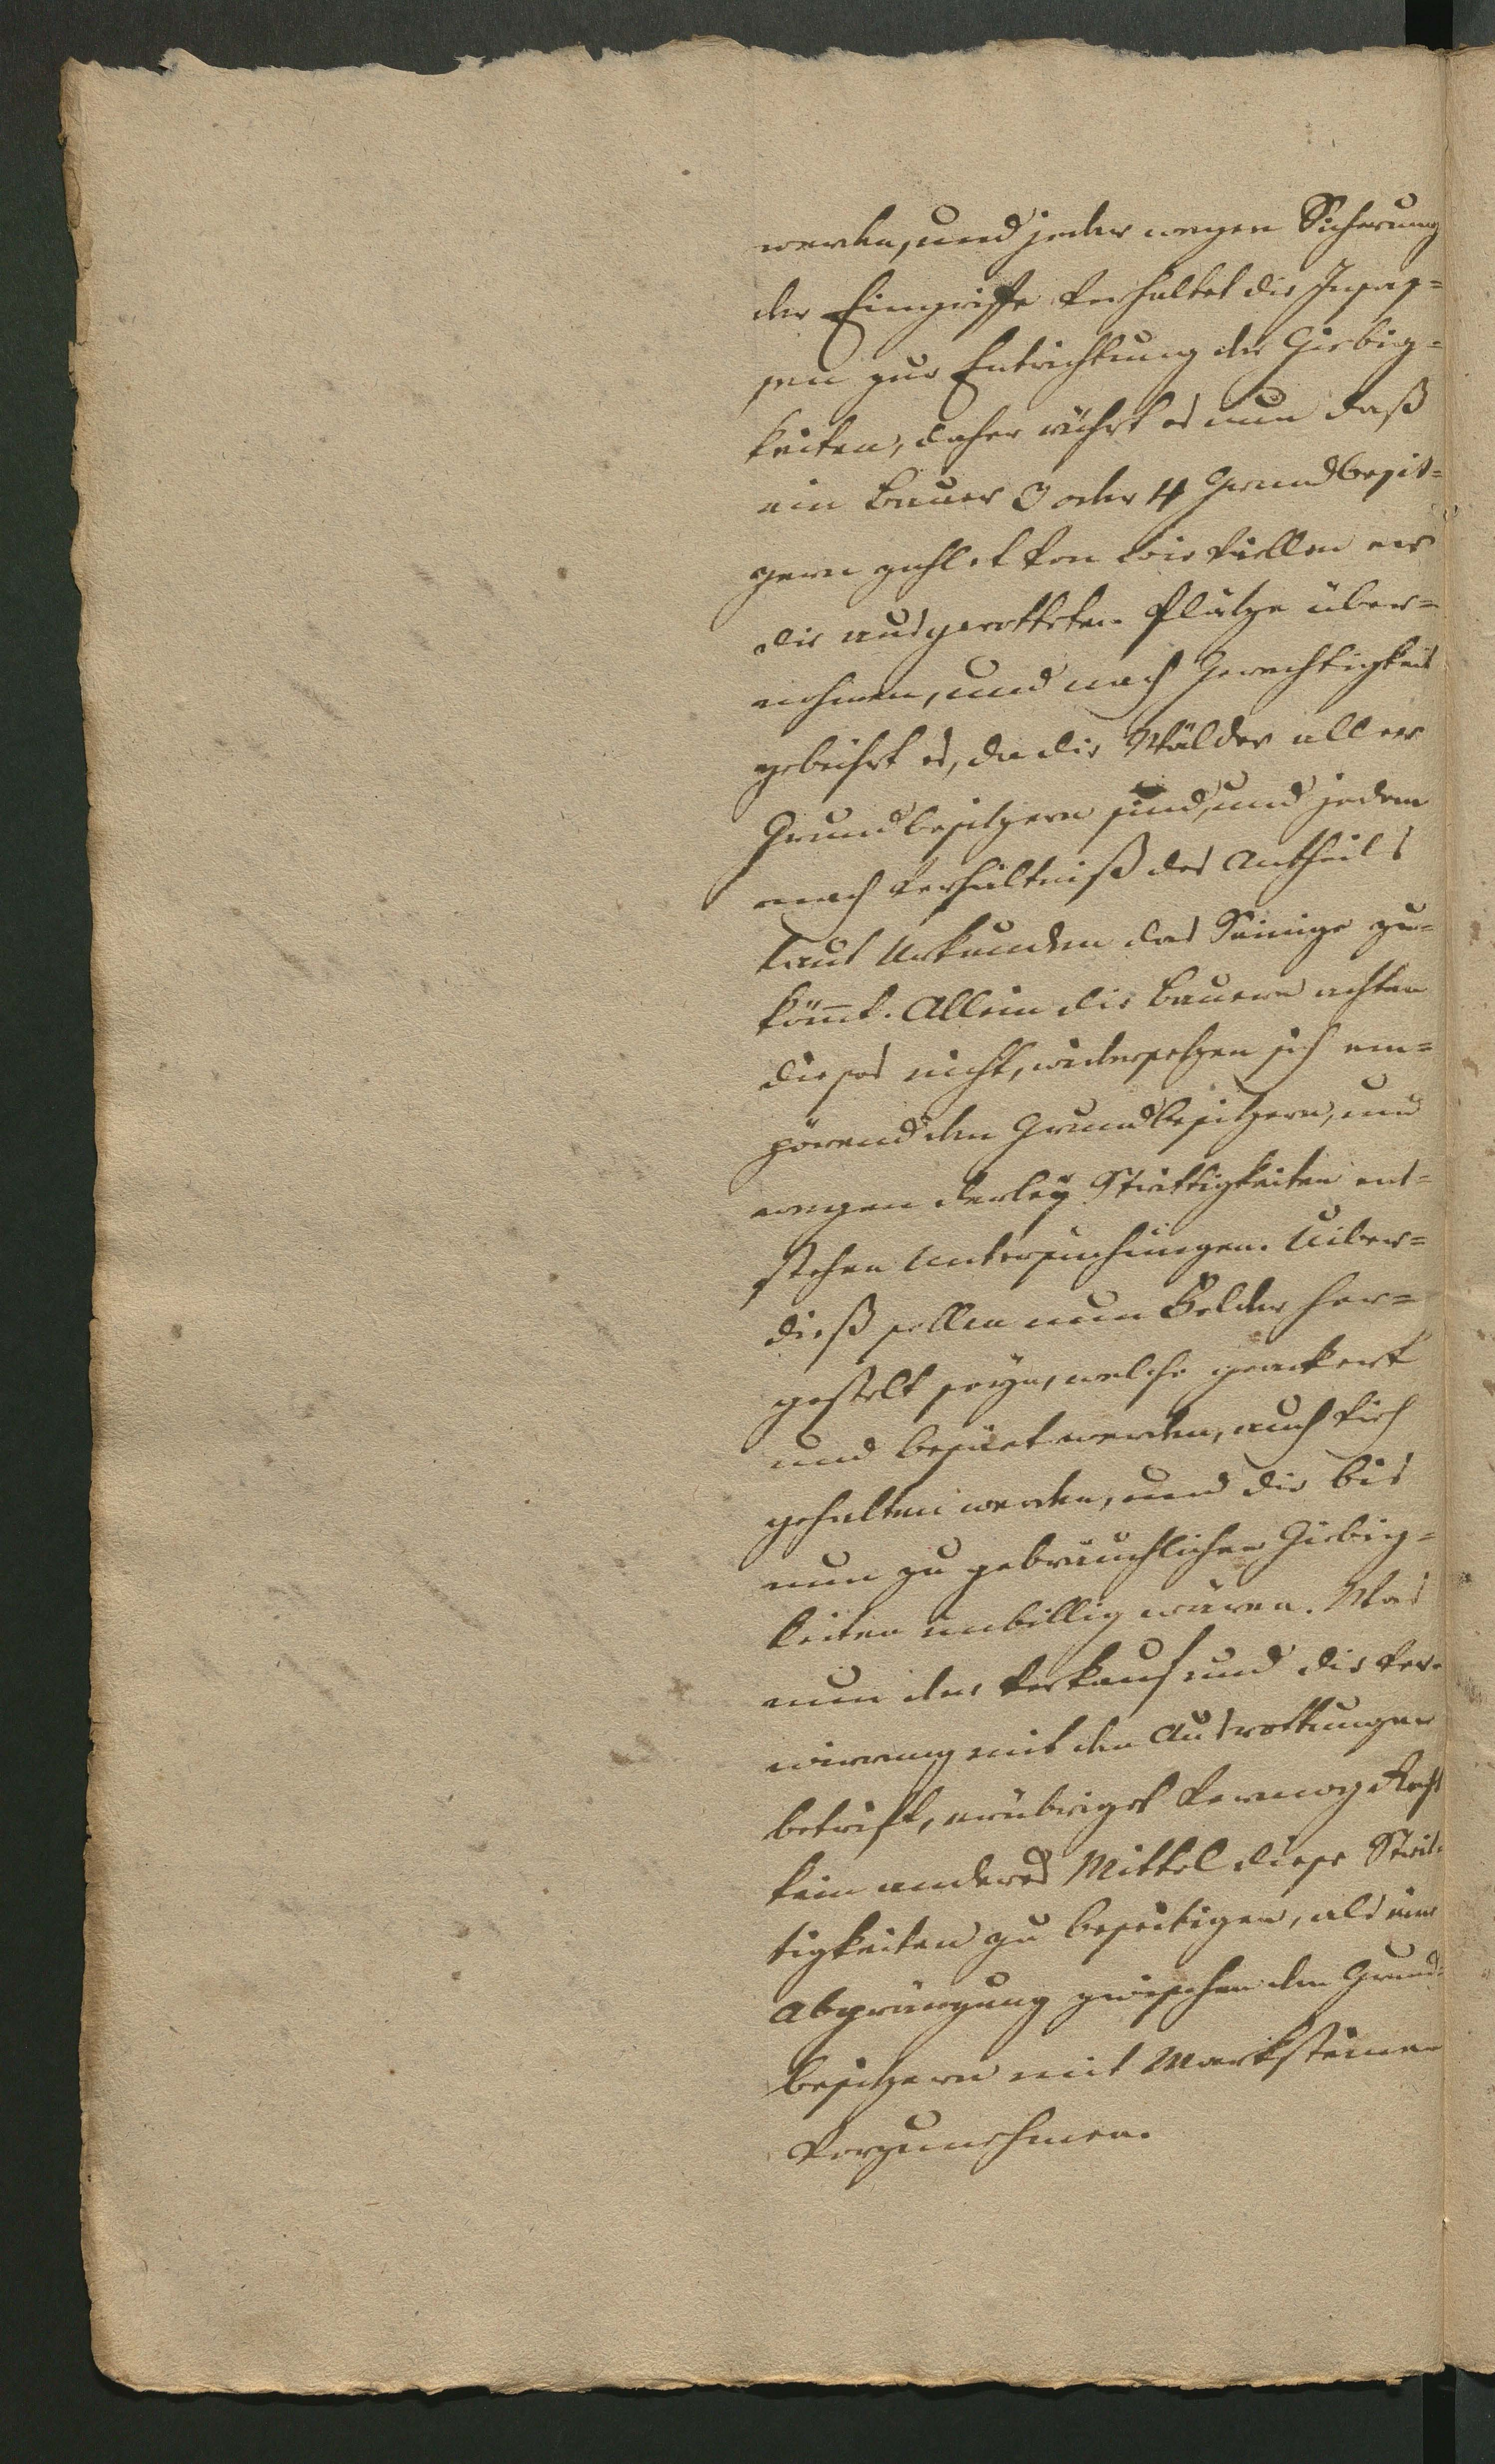 werden, und jeder wegen Sicherung
der Eingriffe verhaltet die Insas=
sen zur Entrichtung der Giebig=
keiten, daher rührt es nun daß
ein Bauer 3 oder 4 Grundbesit=
zern zahlet von wie viellen er
die ausgerotteten Plätze über=
nohmen, und nach Gerechtigkeit
gebührt es, da die Wälder aller
Grundbesitzern sind, und jedem
nach Verhältniß des Antheils
laut Urkunden das Seinige zu=
kömmt. Allein die Bauern achten
dieses nicht, widersetzen sich em=
pörend den Grundbesitzern, und
wegen derley Strittigkeiten ent=
stehen Untersuchungen. Uiber=
dieß sollen nun Felder her=
gestelt seyn, welche geackert
und besäet werden, auch Vieh
gehalten werden, und die bis
nun zu gebräuchlichen Giebig=
keiten unbillig wären. Was
nun den Verkauf und die Ver=
wirrung mit den Ausrottungen
betrift, erübriget vermög Recht
kein anderes Mittel diese Strit=
tigkeiten zu beseitigen, als eine
Abgränzung zwischen den Grund=
besitzern mit Marksteinen
vorzunehmen.